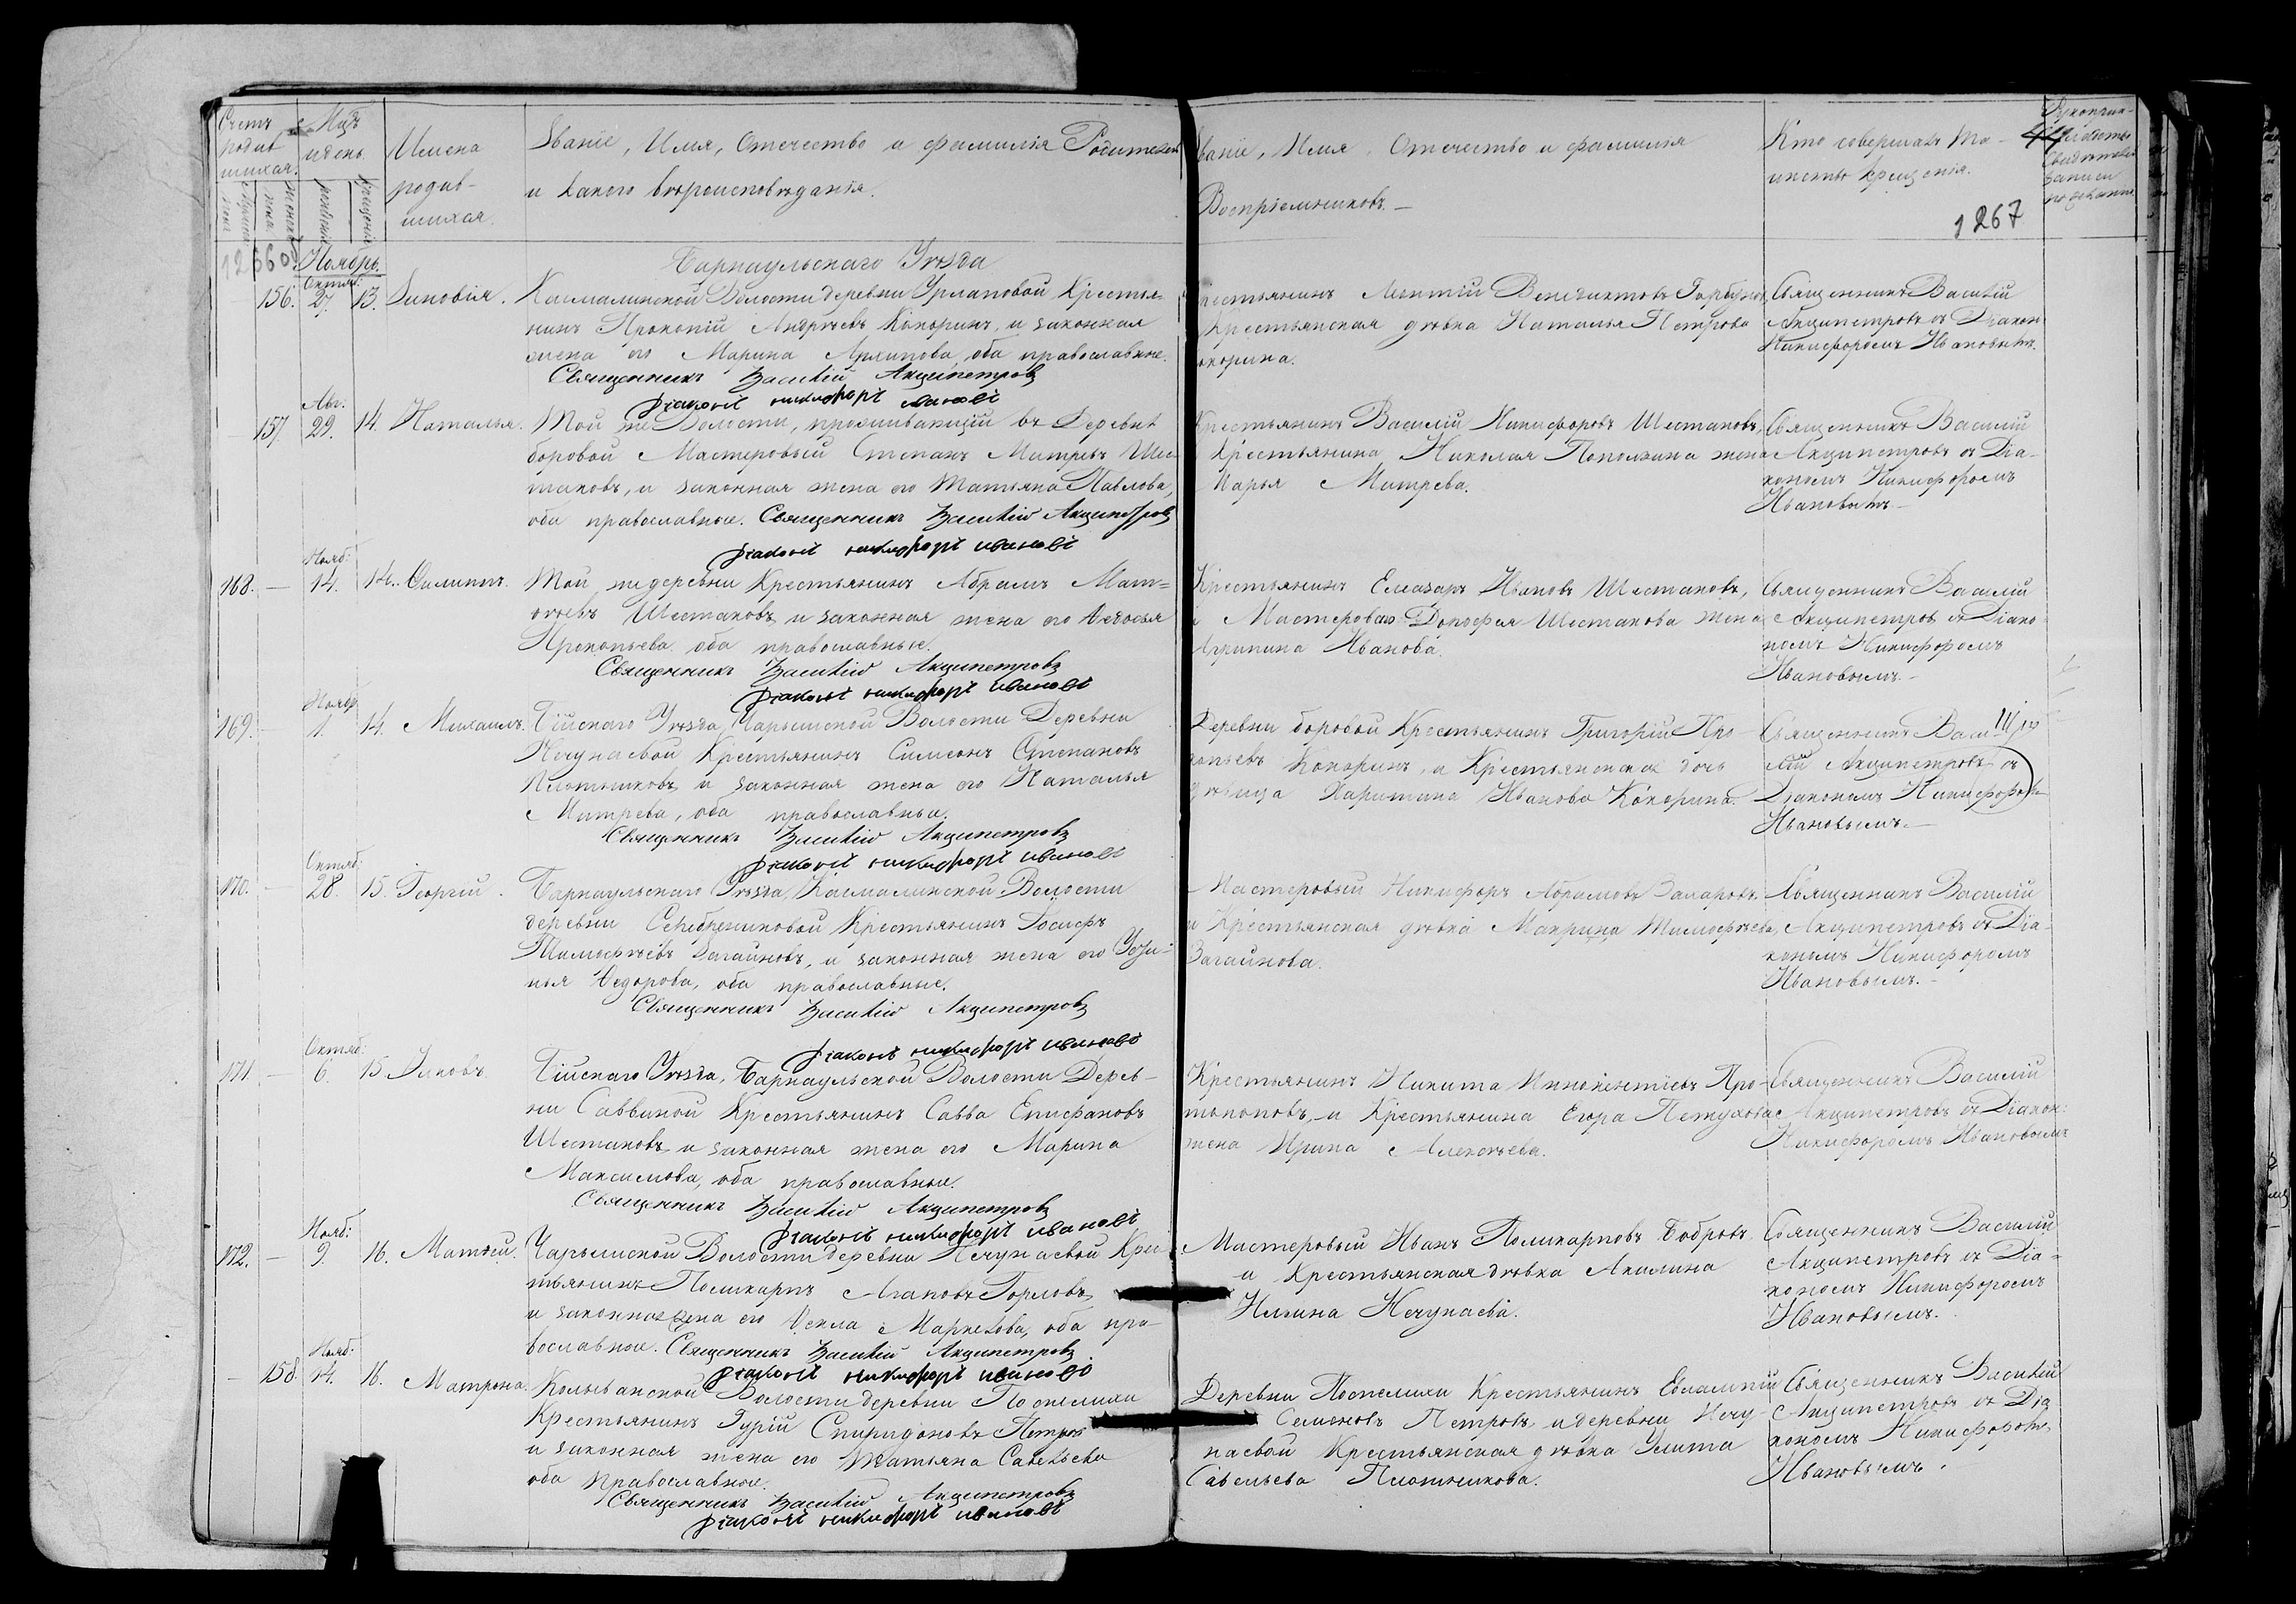 Счетъ родив-шихся.
Мцъ и день.
Имена родив-шихся.
Званіе, Имя, Отечество и фамилія Родителей
и какого вѣроисповѣданія.
Званіе, Имя, Отечество и фамилія
Воспріемниковъ. —
Кто совершалъ та-
инство крещенія.
1267
Ноябрь.
Барнаульскаго Уѣзда
156. Октяб: 27. 13. Зиновія. Касмалинской Волости деревни Урлаповой Крестья=
нинъ Прокопій Андреевъ Кокоринъ, и законная
жена его Марина Архипова, оба православные.
Священникъ Василій Акципетровъ
Діаконъ Никифоръ Ивановъ
Крестьянинъ Леонтій Венедиктовъ Горбунов
Крестьянская дѣвка Наталья Петрова
Кокорина.
Священникъ Василій
Акципетровъ съ Діакон
Никифоромъ Ивановымъ.
157. Авг. 29. 14. Наталья. Той же Волости, проживающій въ Деревнѣ
боровой Мастеровый Степанъ Митревъ Шес-
таковъ, и законная жена его Татьяна Павлова,
оба православные. Священникъ Василій Акципетровъ
Діаконъ Никифоръ Ивановъ
Крестьянинъ Василій Никифоровъ Шестаковъ,
Крестьянина Николая Поползина жена
Марья Митрева.
Священникъ Василій
Акципетровъ съ Діа-
кономъ Никифоромъ
Ивановымъ —
168. — Нояб: 14. 14. Филиппъ. Той же деревни Крестьянинъ Абрамъ Мат=
вѣевъ Шестаковъ, и законная жена его Ѳедосья
Прокопьева оба православные.
Священникъ Василій Акципетровъ
Діаконъ Никифоръ Ивановъ
Крестьянинъ Елеазаръ Ивановъ Шестаковъ,
и Мастероваго Дорофея Шестакова жена
Агрипина Иванова.
Священникъ Василій
Акципетровъ съ Діако
номъ Никифоромъ
Ивановымъ. —
169. — Нояб 1. 14. Михаилъ. Бійскаго Уѣзда, Чарышской Волости Деревни
Нечунаевой Крестьянинъ Симеонъ Степановъ
Плотниковъ, и законная жена его Наталья
Митрева, оба православные.
Священникъ Василій Акципетровъ
Діаконъ Никифоръ Ивановъ
Деревни боровой Крестьянинъ Григорій Про-
копьевъ Кокоринъ, и Крестьянская дочь
дѣвица Харитина Иванова Кокорина.
Священникъ Васи-
лій Акципетровъ съ
Діакономъ Никифоромъ
Ивановымъ. —
170. — Октяб: 28. 15. Георгій. Барнаульскаго Уѣзда, Касмалинской Волости
деревни Серебрениковой Крестьянинъ Іосифъ
Тимофѣевъ Загайновъ, и законная жена его
Ѳедорова, оба православные.
Священникъ Василій Акципетровъ
Діаконъ Никифоръ Ивановъ
Мастеровый Никифоръ Абрамовъ Захаровъ,
и Крестьянская дѣвка Маприна Тимофѣева,
Загайнова.
Священникъ Василій
Акципетровъ съ Діа-
кономъ Никифоромъ
Ивановымъ. —
171. — Октяб: 6. 15 Іаковъ. Бійскаго Уѣзда, Барнаульской Волости Дерев-
ни Саввиной Крестьянинъ Савва Епифановъ
Шестаковъ, и законная жена его Марина
Максимова, оба православные.
Священникъ Василій Акципетровъ
Діаконъ Никифоръ Ивановъ
Крестьянинъ Никита Инокентіевъ Про-
топоповъ, и Крестьянина Егора Петухова
жена Ирина Алексѣева.
Священникъ Василій
Акципетровъ съ Діакон:
Никифоромъ Ивановымъ
172. — Нояб: 9. 16. Матѳей. Чарышской Волости деревни Нечунаевой Крес-
тьянинъ Поликарпъ Агаповъ Горловъ,
и законная жена его Ѳекла Маркелова, оба пра-
вославные. Священникъ Василій Акципетровъ
Діаконъ Никифоръ Ивановъ
Мастеровый Иванъ Поликарповъ Бобровъ
и Крестьянская дѣвка Акилина
Ильина Нечунаева.
Священникъ Василій
Акципетровъ съ Діа=
кономъ Никифоромъ
Ивановымъ.
— 158 Нояб: 14. 16. Матрона. Колыванской Волости деревни Поспелихи
Крестьянинъ Гурій Спиридоновъ Петровъ
и законная жена его Татьяна Савельева
оба Православные.
Священникъ Василій Акципетровъ
Діаконъ Никифоръ Ивановъ
Деревни Поспелихи Крестьянинъ Евлампій
Семеновъ Петровъ, и деревни Нечу-
наевой Крестьянская дѣвка Улита
Савельева Плотникова.
Священникъ Василій
Акципетровъ съ Діа
кономъ Никифоромъ
Ивановымъ.